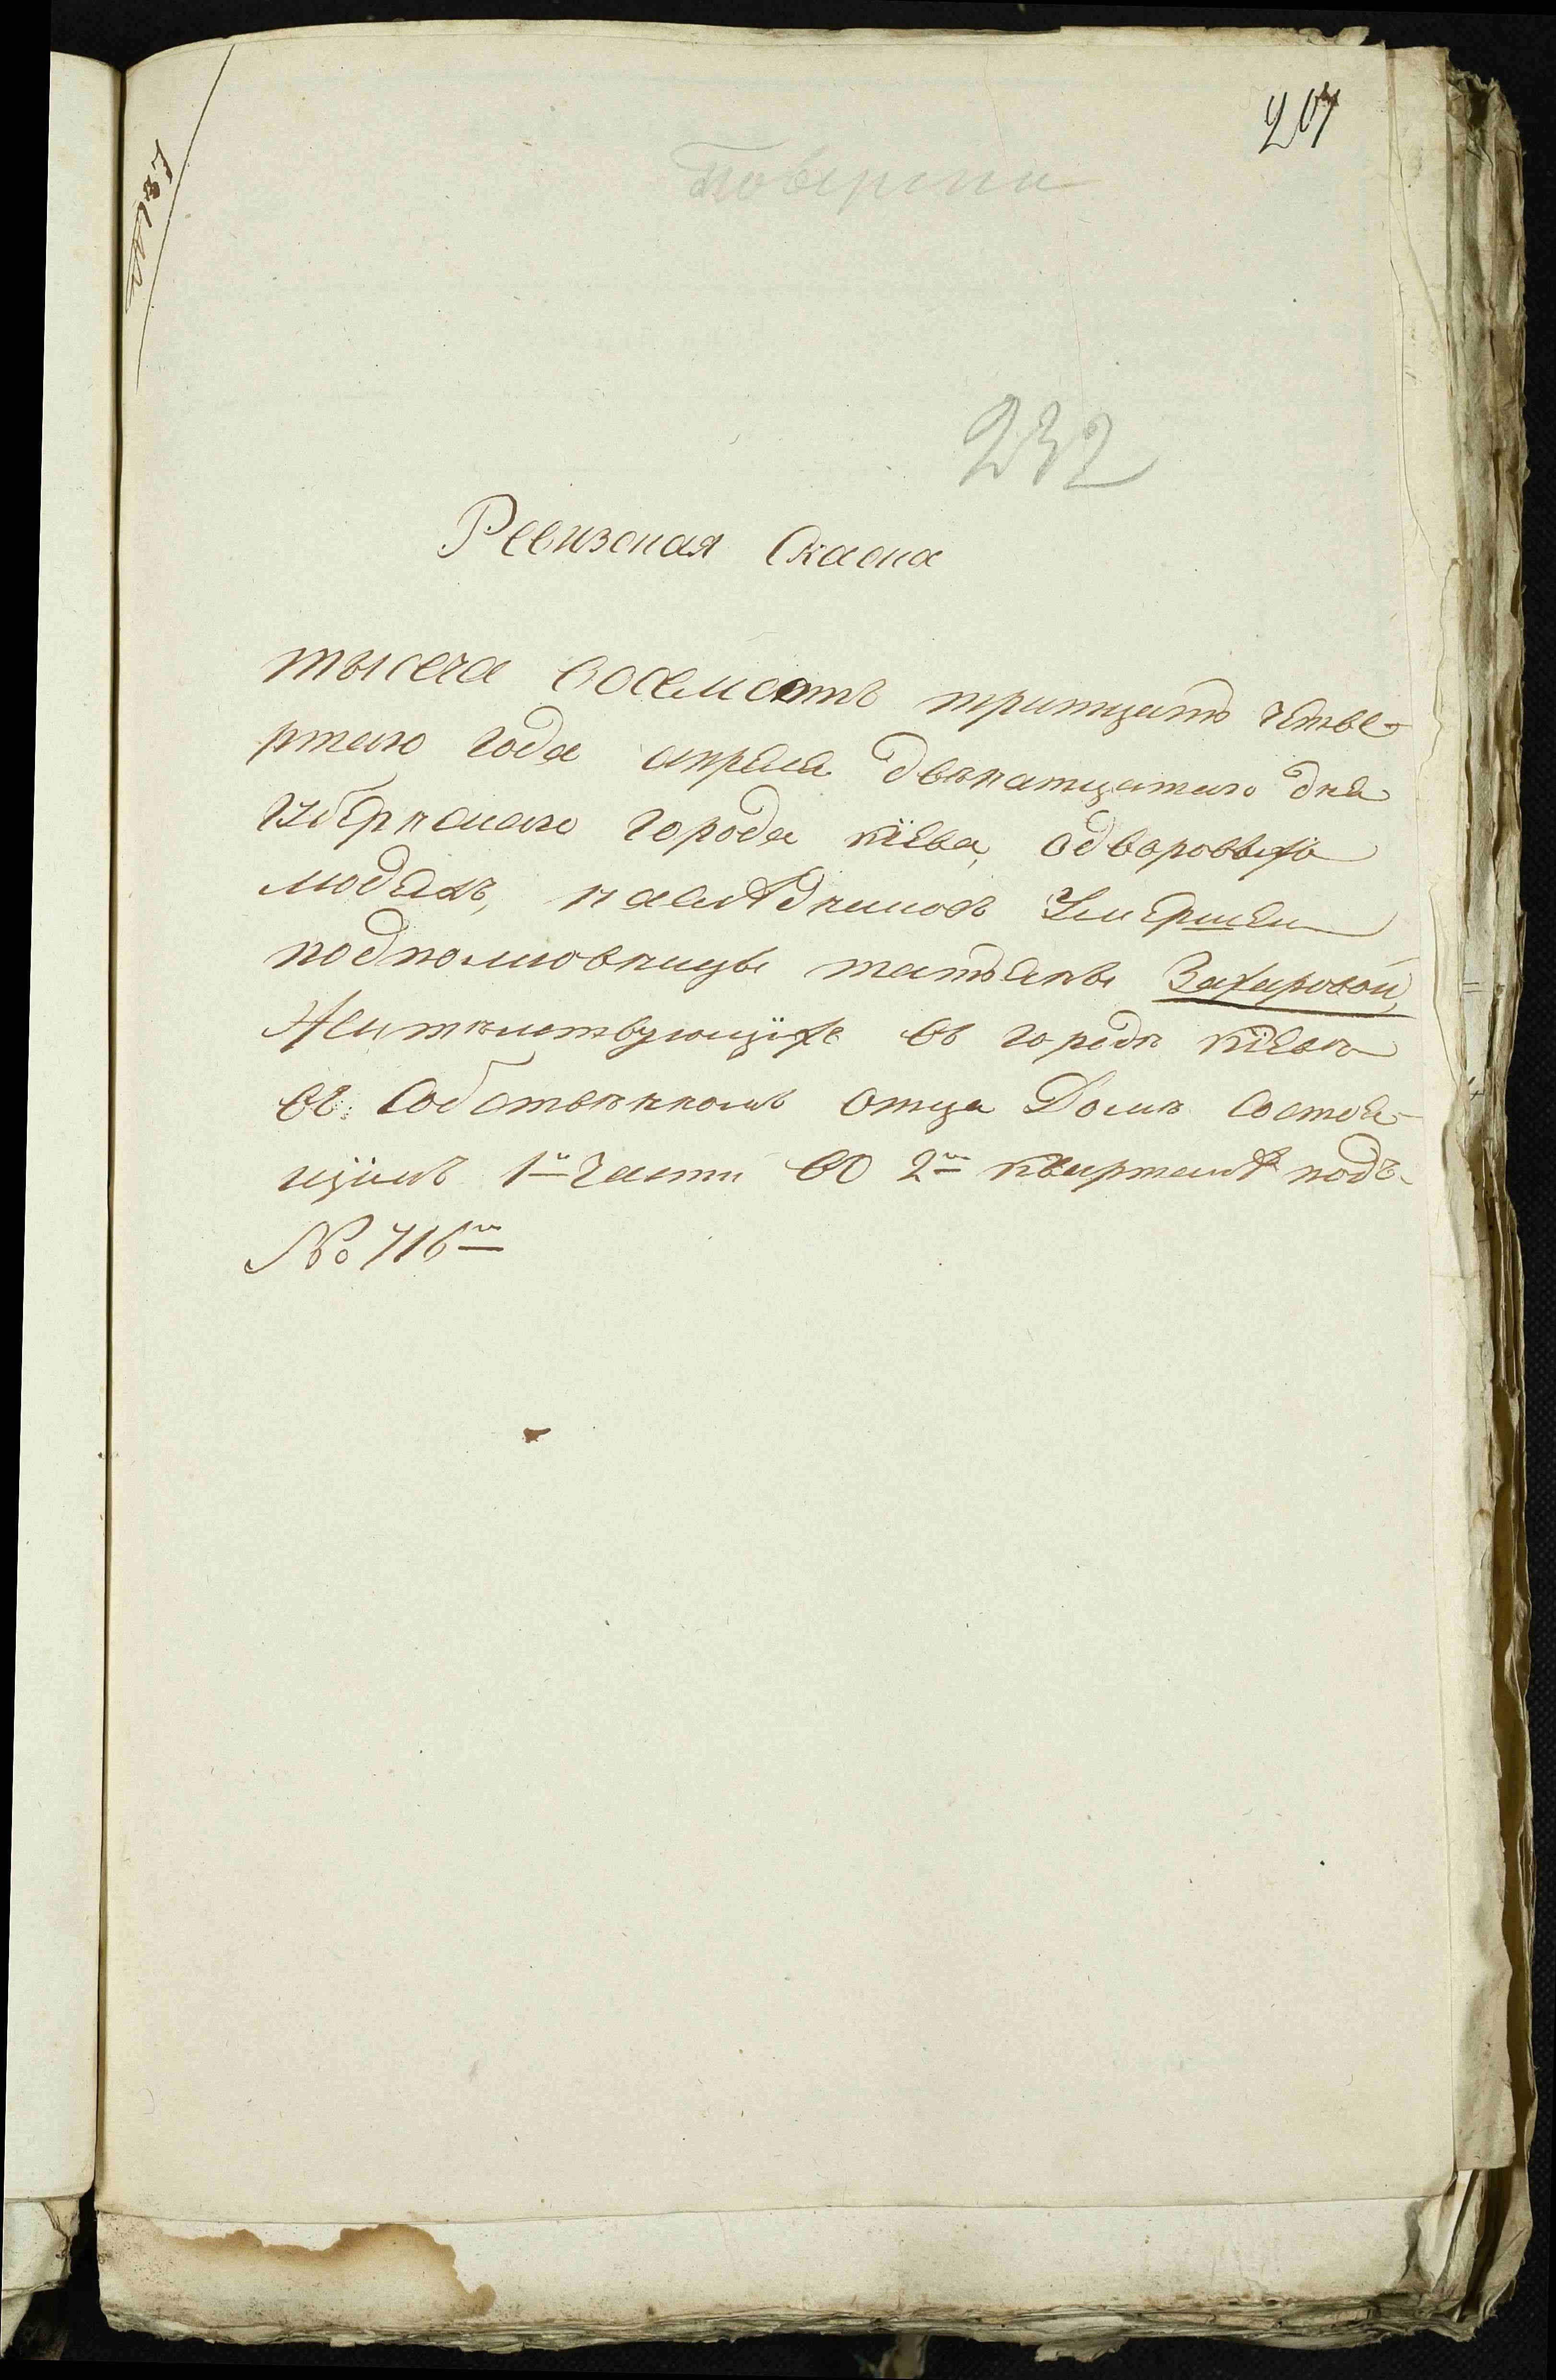 207
Поверены
232
Ревизская Скаска
тысеча восемсотъ тритцать четве-
ртаго года апреля двенатцатаго дня
губернскаго города кіева, одворовыхъ
людяхъ, наслѣдниковъ Умершей
подполковницы татьяны Захаровой,
Жителствующихъ въ городе кіеве
въ Собственномъ отца Доме состоя-
щимъ 1й части во 2м кварталѣ подъ
№ 716м